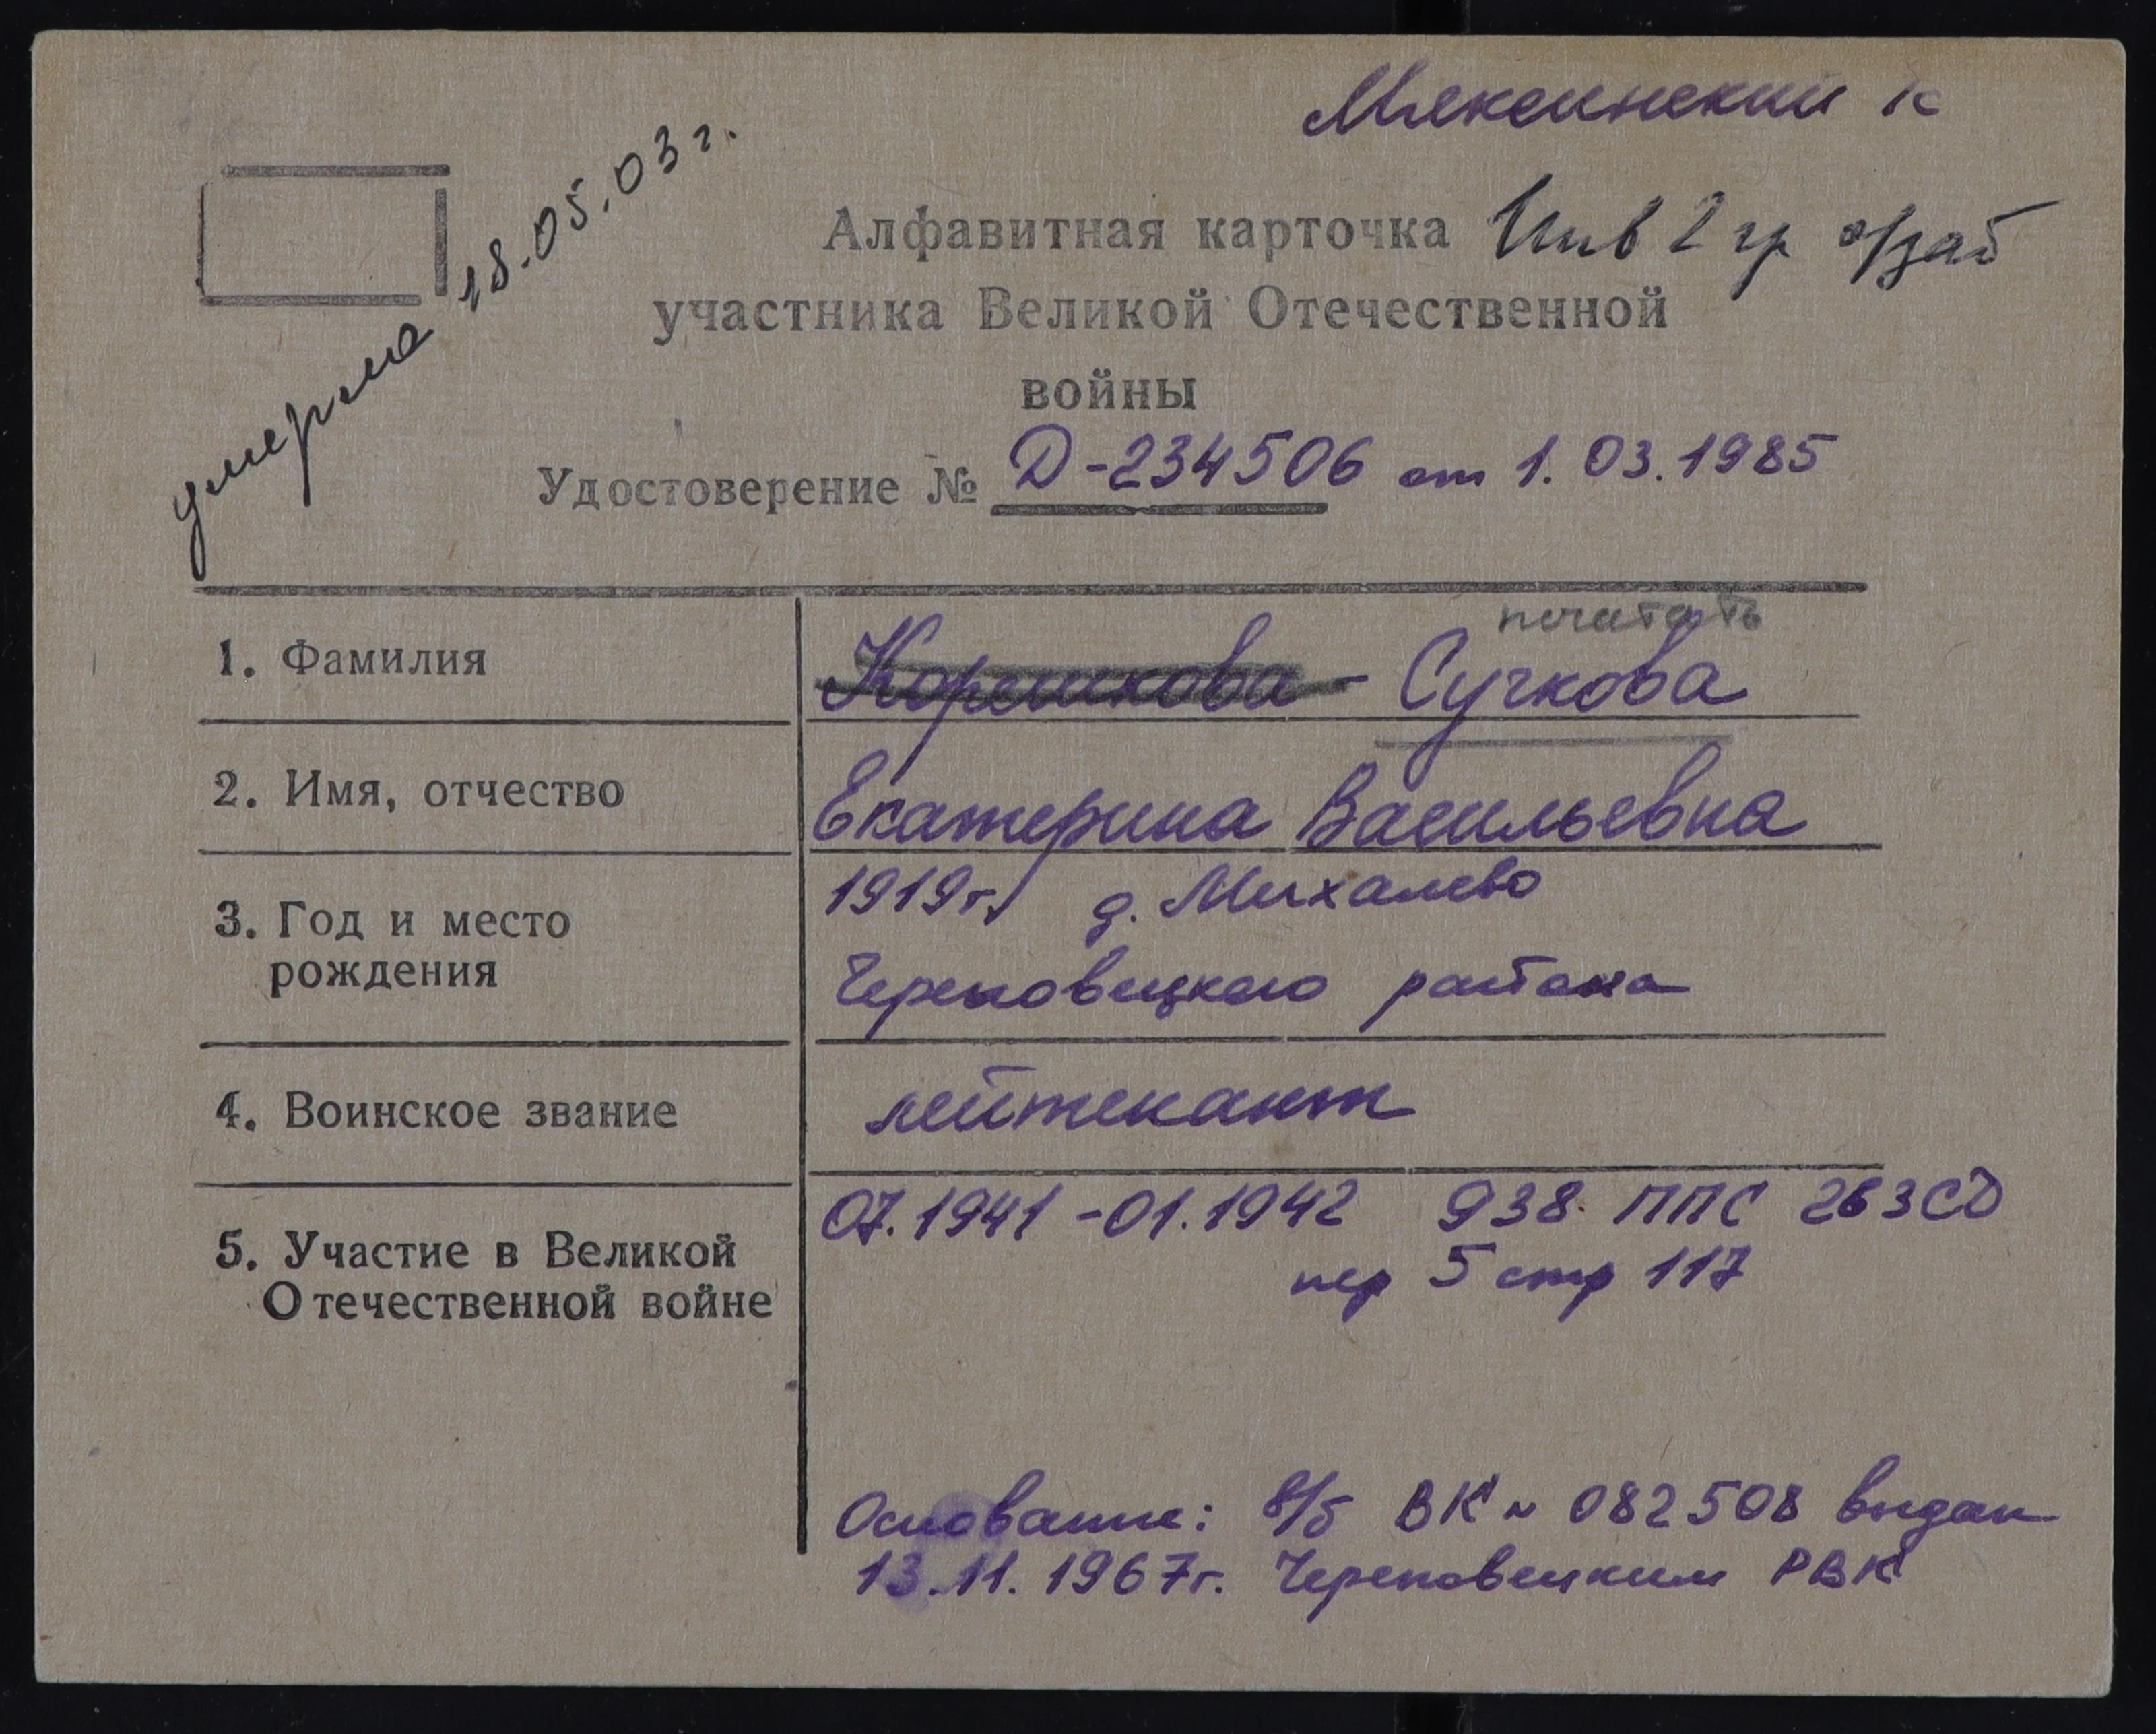 Мяксинский К
умерла 18.05.03 г.
Алфавитная карточка Инв 2 гр о/заб
участника Великой Отечественной
войны
Удостоверение № Д-234506 от 1.03.1985
печатать
1. Фамилия Корешкова - Сучкова
2. Имя, отчество Екатерина Васильевна
3. Год и место 1919г. д. Михалево
рождения Череповецкого района
4. Воинское звание лейтенант
07.1941 - 01.1942 938 ППС 263СД
5. Участие в Великой пер 5 стр 117
Отечественной войне
Основание: в/б ВК № 082508 выдан
13.11.1967г. Череповецким РВК